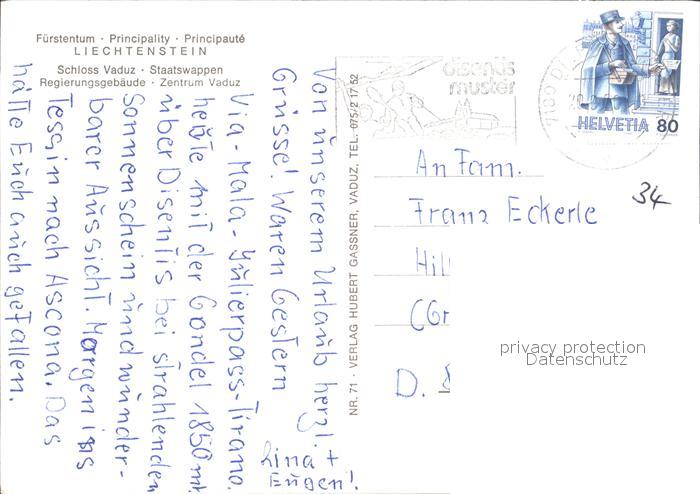 Fürstentum · Principality · Principauté
LIECHTENSTEIN
Schloss Vaduz · Staatswappen
Regierungsgebäude · Zentrum Vaduz
Von unserem Urlaub herzl.
Grüsse! Waren Gestern
Via-Mala-Julierpass-Tirano.
heute mit der Gondel 1850 mtr
über Disentis bei strahlenden
Sonnenschein und wunder-
barer Aussicht. Morgen ins
Tessin nach Ascona. Das
hätte Euch auch gefallen.
Lina +
Eugen!
NR. 71 · VERLAG HUBERT GASSNER, VADUZ, TEL. 075/2 17 52
disentis
muster
7180
HELVETIA 80
An Fam.
Franz Eckerle
34
Hil
D.
privacy protection
Datenschutz